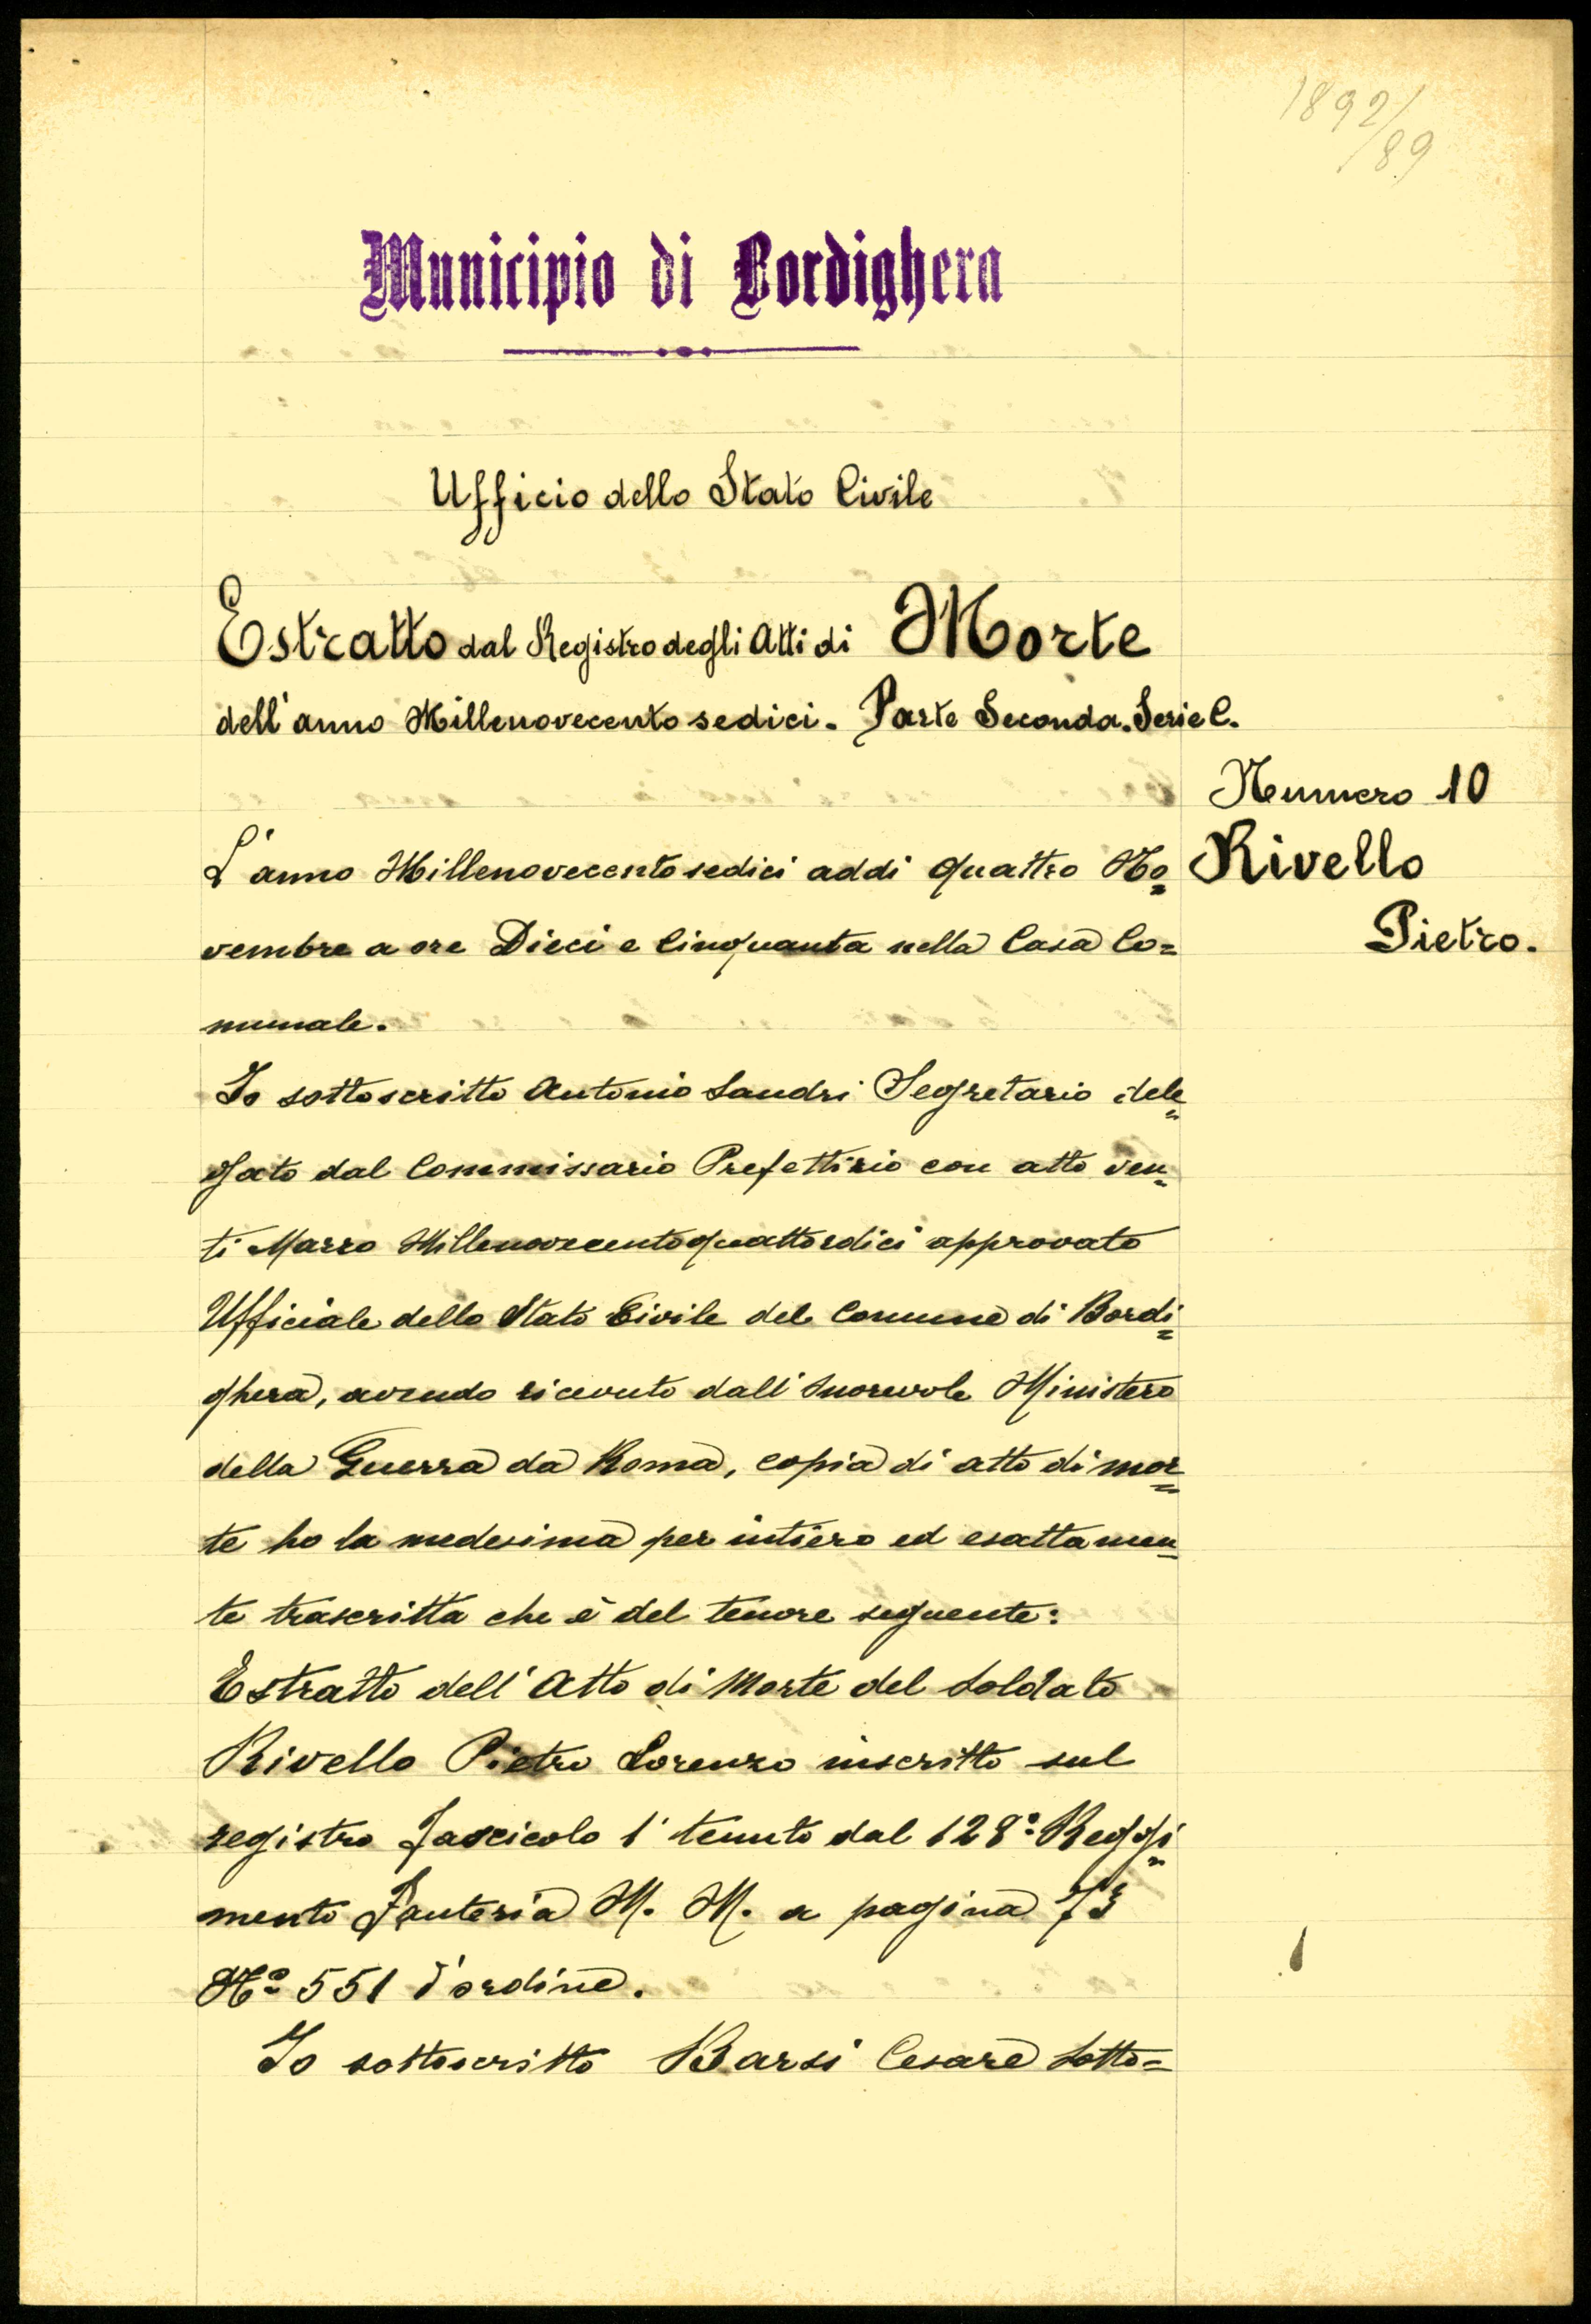 1892/89
Municipio di Bordighera
Ufficio dello Stato Civile
Estratto dal Registro degli Atti di Morte
dell'anno Millenovecento sedici. Parte Seconda. Serie C.
Numero 10
Rivello
Pietro.
L'anno Millenovecentosedici addi quattro No=
vembre a ore Dieci e Cinquanta nella Casa Co=
munale.
Io sottoscritto Antonio Sandri Segretario dele=
gato dal Commissario Prefettizio con atto ven=
ti Marzo Millenovecentoquattordici approvato
Ufficiale dello Stato Civile del Comune di Bordi=
ghera, avendo ricevuto dall'Onorevole Ministero
della Guerra da Roma, copia di atto di mor=
te ho la medesima per intiero ed esattamen=
te trascritta che è del tenore seguente:
Estratto dell'Atto di Morte del Soldato
Rivello Pietro Lorenzo inscritto sul
registro fascicolo 1° tenuto dal 128° Reggi=
mento Fanteria M. M. a pagina 73
N° 551 d'ordine.
Io sottoscritto Barsi Cesare Sotto=